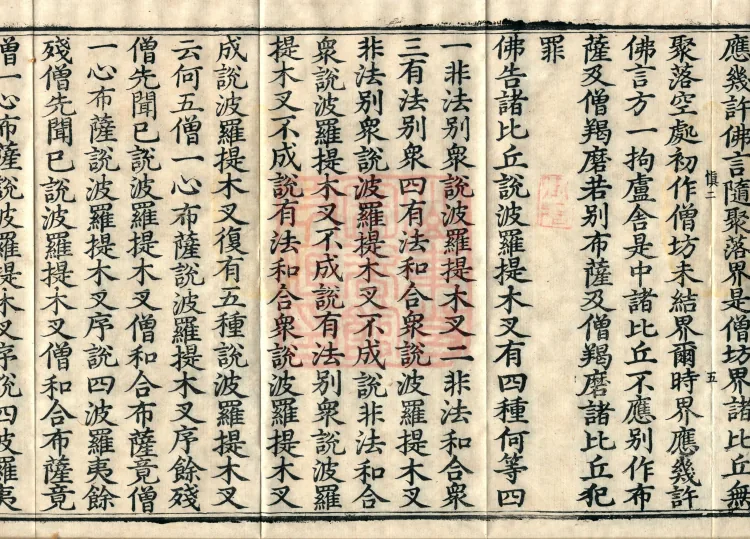 應幾許佛言隨聚落界是僧坊界諸比丘無
慎二 五
聚落空處初作僧坊未結界爾時界應幾許
佛言方一拘盧舍是中諸比丘不應別作布
薩及僧羯磨若別布薩及僧羯磨諸比丘犯
罪
佛告諸比丘說波羅提木叉有四種何等四
一非法別衆說波羅提木叉二非法和合衆
三有法別衆四有法和合衆說波羅提木叉
非法別衆說波羅提木叉不成說非法和合
衆說波羅提木叉不成說有法別衆說波羅
提木叉不成說有法和合衆說波羅提木叉
成說波羅提木叉復有五種說波羅提木叉
云何五僧一心布薩說波羅提木叉序餘殘
僧先聞已說波羅提木叉僧和合布薩竟僧
一心布薩說波羅提木叉序說四波羅夷餘
殘僧先聞已說波羅提木叉僧和合布薩竟
僧一心布薩說波羅提木叉序說四波羅夷